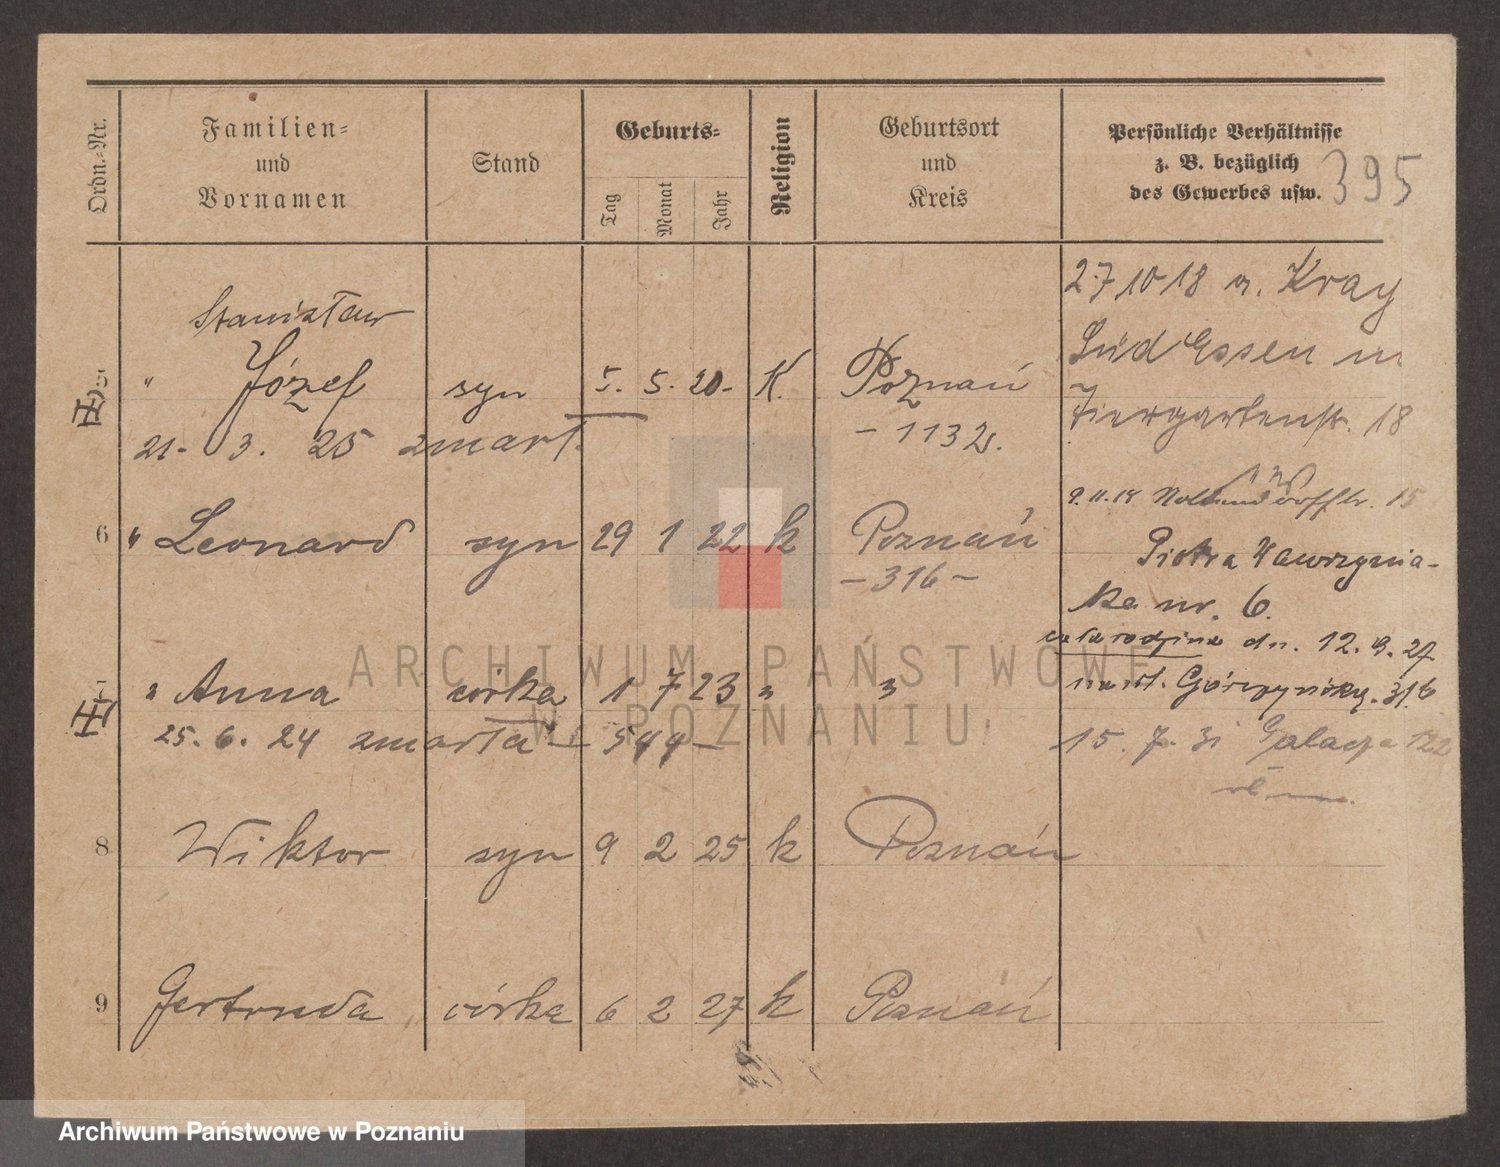 Ordn.-Nr.
Familien-
und
Vornamen
Stand
Geburts-
Tag
Monat
Jahr
Religion
Geburtsort
und
Kreis
Persönliche Verhältnisse
z. B. bezüglich
des Gewerbes usw.
395
27 10 18 n. Kray
Süd Essen
Tiergartenstr. 18
Stanisław
5 " Józef syn 5. 5. 20. K. Poznań
21. 3. 25 zmarł.
- 1132.
9.11.18 Nollendorffstr. 15
6 " Leonard syn 29 1 22 k Poznań
- 316 -
Piotra Wawrzynia-
ka nr. 6
cała rodzina dn. 12. 9. 27
7 " Anna córka 1 7 23 " "
25. 6. 24 zmarła - 544 -
15. 7. 31 122
8 Wiktor syn 9 2 25 k Poznań
9 Gertruda córka 6 2 27 k Poznań
ARCHIWUM PAŃSTWOWE
W POZNANIU
Archiwum Państwowe w Poznaniu